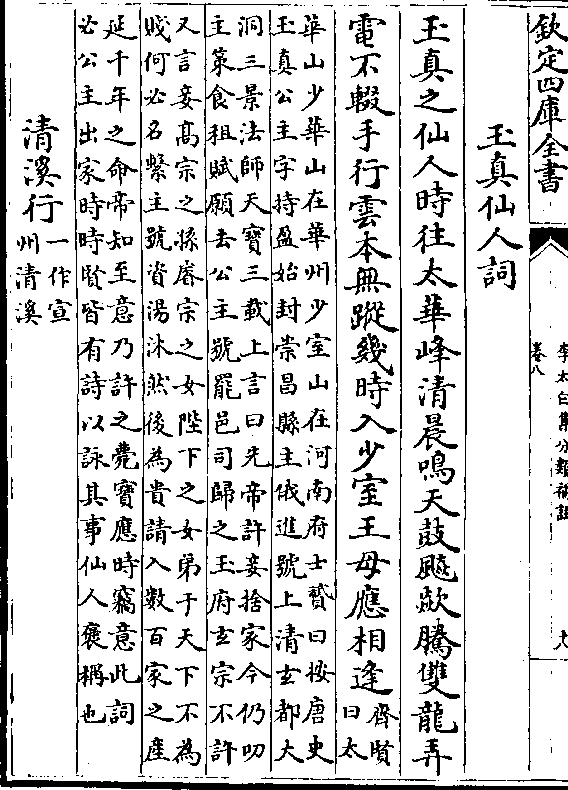 欽定四庫全書
李太白集分類補註
卷八
玉真仙人詞
玉真之仙人時往太華峰清晨鳴天鼓飈欻騰雙龍弄
電不輟手行雲本無蹤幾時入少室王母應相逢齊賢
曰太
華山少華山在華州少室山在河南府士贇曰按唐史
玉真公主字持盈始封崇昌縣主俄進號上清玄都大
洞三景法師天寶三載上言曰先帝許妾捨家今仍叨
主第食租賦願去公主號罷邑司歸之王府玄宗不許
又言妾高宗之孫睿宗之女陛下之女弟于天下不為
賤何必名繫主號資湯沐然後為貴請入數百家之產
延千年之命帝知至意乃許之薨寶應時竊意此詞
必公主出家時時賢皆有詩以詠其事仙人褒稱也
清溪行一作宣
州清溪